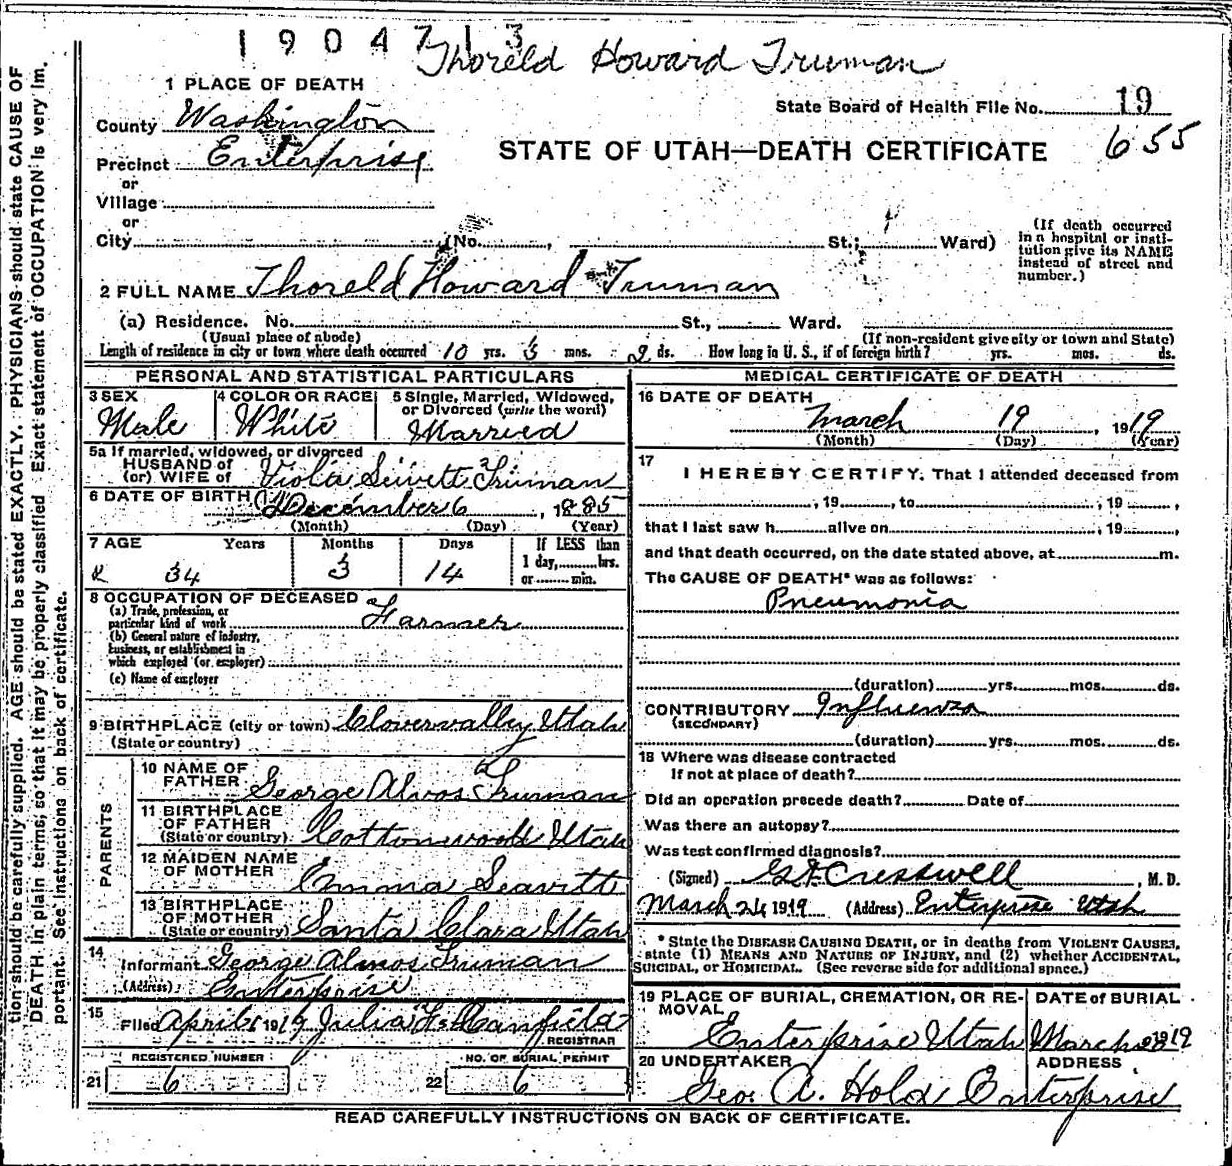 1904713
Thoreld Howard Truman
1 PLACE OF DEATH
State Board of Health File No. 19
County Washington
655
STATE OF UTAH—DEATH CERTIFICATE
Precinct Enterprise
or
Village
or
City (No. , St.; Ward)
(If death occurred in a hospital or insti-
tution give its NAME
instead of street and
number.)
2 FULL NAME Thoreld Howard Truman
(a) Residence. No. St., Ward.
(Usual place of abode) (If non-resident give city or town and State)
Length of residence in city or town where death occurred 10 yrs. 3 mos. 2 ds. How long in U. S., if of foreign birth? yrs. mos. ds.
PERSONAL AND STATISTICAL PARTICULARS
3 SEX
Male
4 COLOR OR RACE
White
5 Single, Married, Widowed,
or Divorced (write the word)
Married
5a If married, widowed, or divorced
HUSBAND of
(or) WIFE of Viola Truman
6 DATE OF BIRTH December 6, 1885
(Month) (Day) (Year)
7 AGE Years Months Days If LESS than
1 day, hrs.
or min.
34 3 14
8 OCCUPATION OF DECEASED
(a) Trade, profession, or
particular kind of work Farmer
(b) General nature of industry,
business, or establishment in
which employed (or employer)
(c) Name of employer
9 BIRTHPLACE (city or town) Clovervalley Utah
(State or country)
PARENTS
10 NAME OF
FATHER George Truman
11 BIRTHPLACE
OF FATHER
(State or country) Cottonwood Utah
12 MAIDEN NAME
OF MOTHER Emma Leavitt
13 BIRTHPLACE
OF MOTHER
(State or country) Santa Clara Utah
14
Informant George Almos Truman
(Address) Enterprise
15
Filed April 1919 Julia Canfield
REGISTRAR
REGISTERED NUMBER NO. OF BURIAL PERMIT
21 6 22 6
MEDICAL CERTIFICATE OF DEATH
16 DATE OF DEATH
March 19, 1919
(Month) (Day) (Year)
17
I HEREBY CERTIFY, That I attended deceased from
, 19 , to , 19 ,
that I last saw h alive on , 19
and that death occurred, on the date stated above, at m.
The CAUSE OF DEATH* was as follows:
Pneumonia
(duration) yrs. mos. ds.
CONTRIBUTORY Influenza
(SECONDARY)
(duration) yrs. mos. ds.
18 Where was disease contracted
If not at place of death?
Did an operation precede death? Date of
Was there an autopsy?
Was test confirmed diagnosis?
(Signed) Cresswell, M. D.
March 24 1919 (Address) Enterprise Utah
* State the DISEASE CAUSING DEATH, or in deaths from VIOLENT CAUSES,
state (1) MEANS AND NATURE OF INJURY, and (2) whether ACCIDENTAL,
SUICIDAL, or HOMICIDAL. (See reverse side for additional space.)
19 PLACE OF BURIAL, CREMATION, OR RE-
MOVAL
Enterprise Utah
DATE of BURIAL
March 1919
20 UNDERTAKER ADDRESS
Geo. A. Holt Enterprise
READ CAREFULLY INSTRUCTIONS ON BACK OF CERTIFICATE.
tion should be carefully supplied. AGE should be stated EXACTLY. PHYSICIANS should state CAUSE OF
DEATH in plain terms, so that it may be properly classified. Exact statement of OCCUPATION is very im-
portant. See instructions on back of certificate.